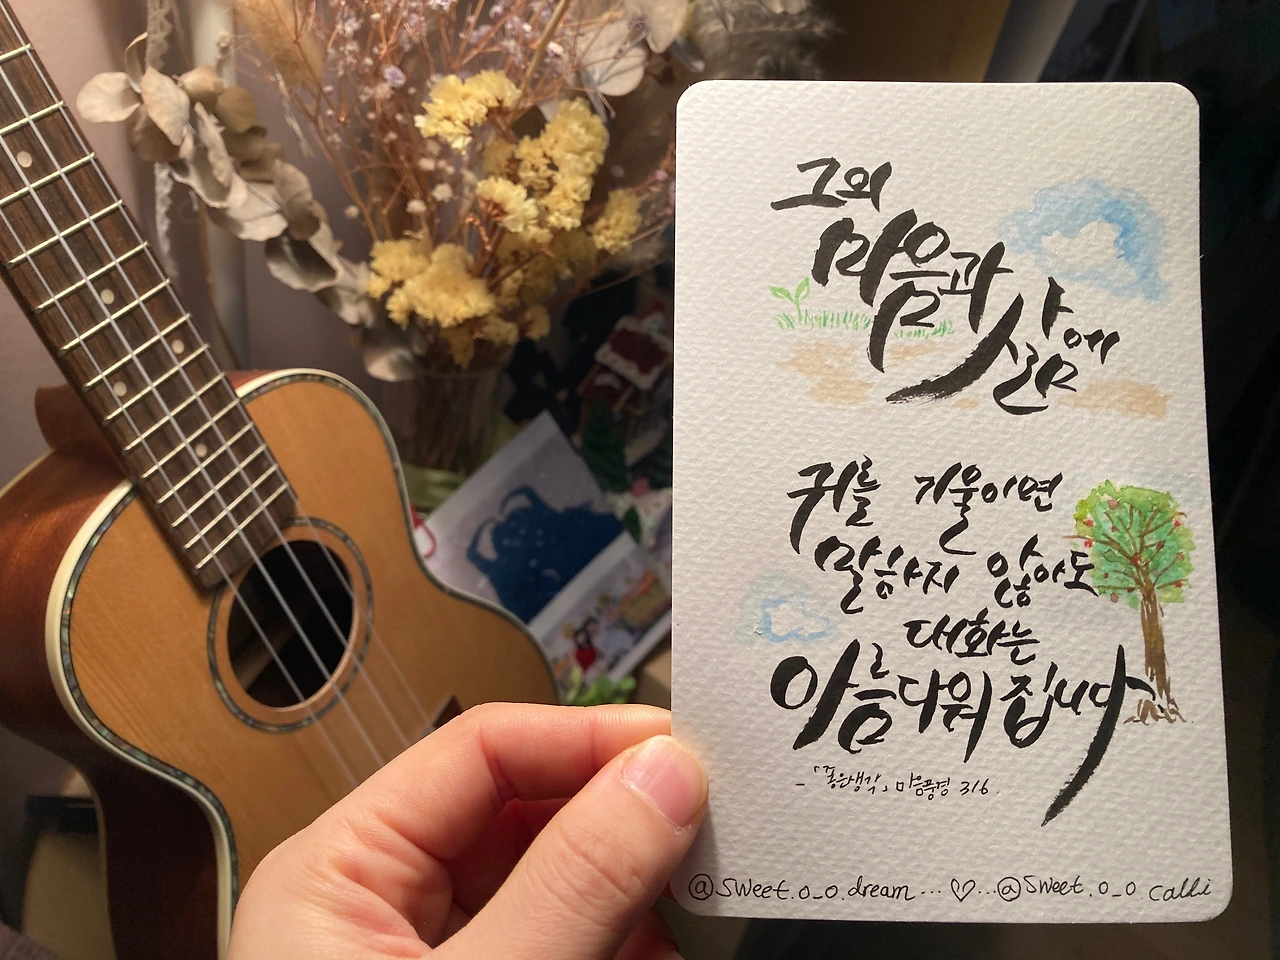 그의
마음과
삶에
귀를 기울이면
말하지 않아도
대화는
아름다워집니다
-「좋은생각」 마음풍경 316.
@sweet.o_o.dream...♡...@sweet.o_o_calli